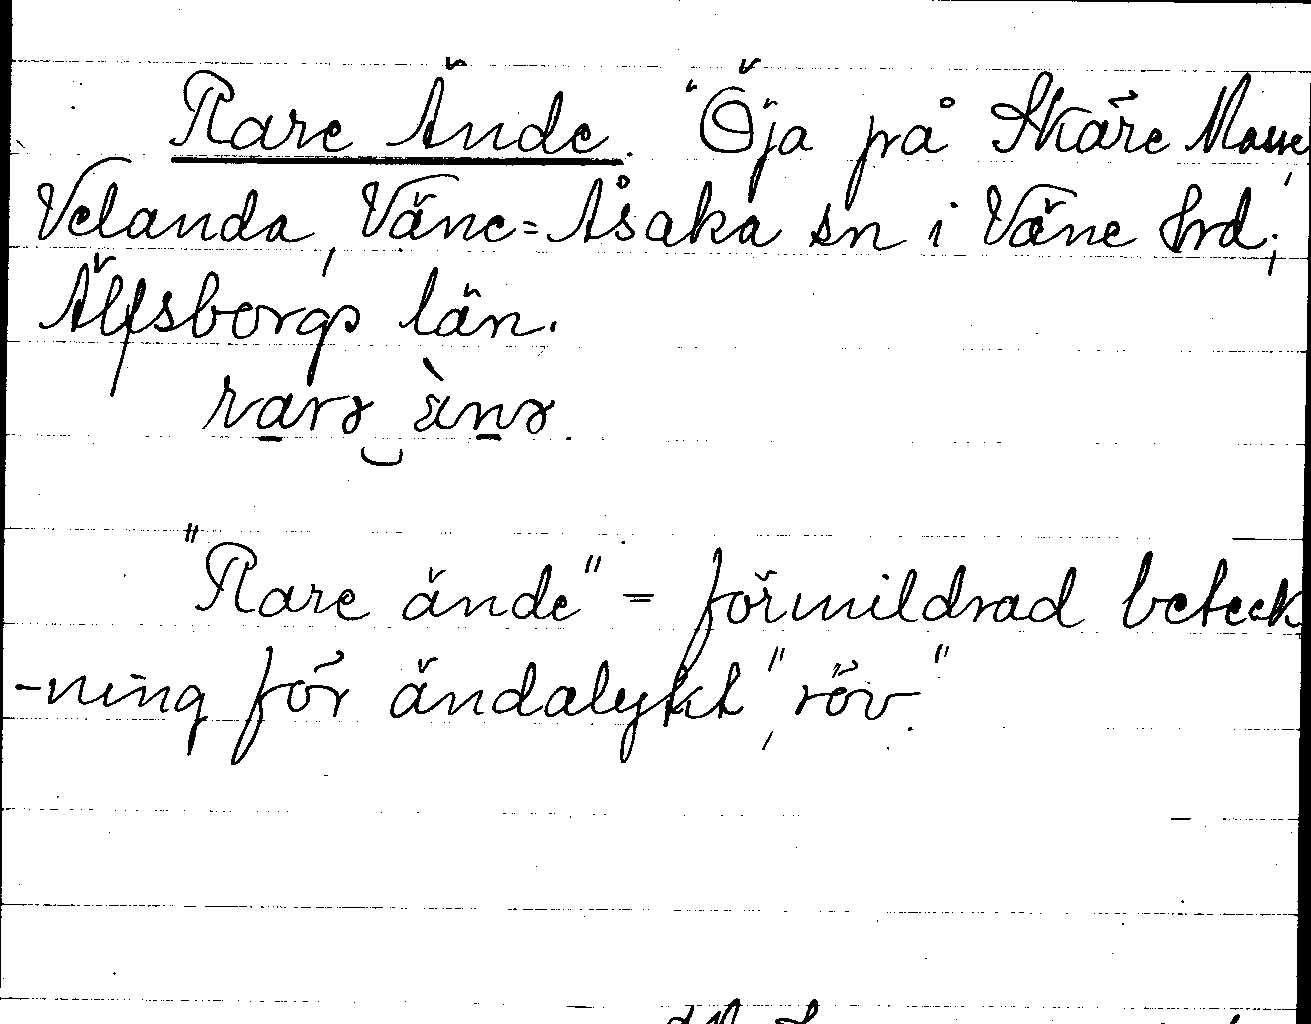 Rare Ände. "Öja på Skäre Mosse,
Velanda, Väne=Åsaka sn i Väne hrd;
Älfsborgs län.
rarə ‿ ànə.
"Rare ände" = förmildrad beteck
-ning för ändalykt, "röv."